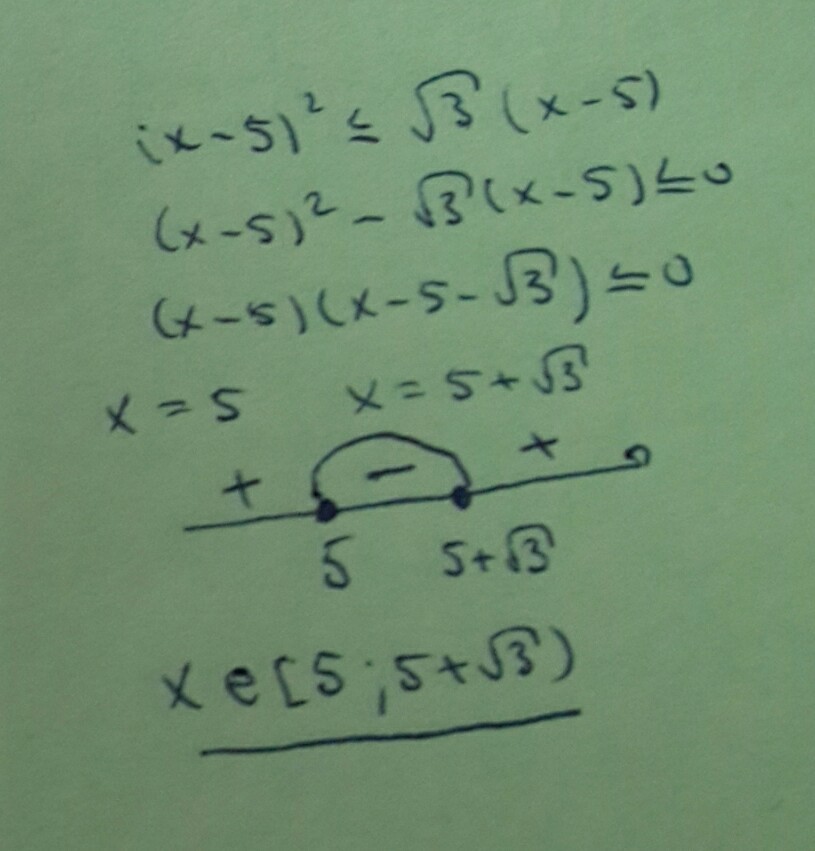 (x-5)² ≤ √3 (x-5)
(x-5)² - √3(x-5) ≤ 0
(x-5)(x-5-√3) ≤ 0
x = 5 x = 5+√3
+ - +
5 5+√3
x e [5 ; 5+√3)